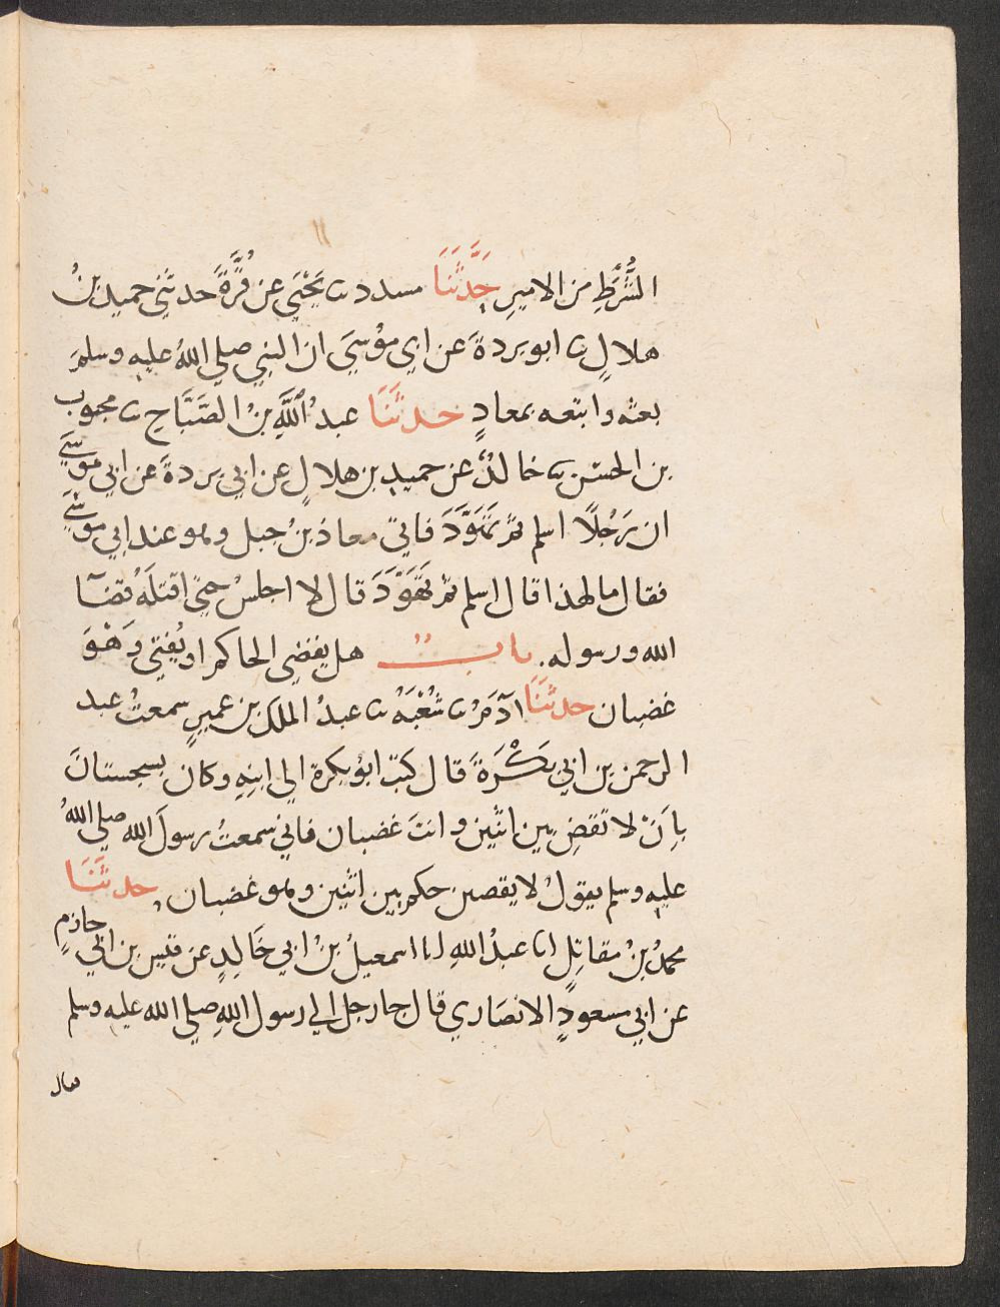 الشُّرَطِ من الاميرِ حَدَّثَنَا مسدد ثنا يَحْيَى عن قُرَّةَ حدثنى حميد بنُ
هلالٍ ثنا ابو بردةَ عن ابى موُسَيَ ان النبي صلي اللهُ عليه وسلمَ
بعثه واتبعه بمعاذٍ حدثَنَا عبدُ اللَّهِ بنُ الصَّبَّاحِ ثنا محبوب
بن الحسَن ثنا خالدٌ عن حميدِ بن هلالٍ عن ابي بردةَ عن ابي موسَيَ
ان رَجُلًا اسلم ثم تَهَوَّدَ فاتي معاذ بنُ جبل وهو عند ابي موسَيَ
فقال ما لهذا قال اسلم ثم تَهَوَّدَ قال لا اجلسُ حتى اقتلَهُ قضَآ
الله ورسوله. بابٌ هل يقضي الحاكم او يُفتي وَهْوَ
غضبان حدثنَا آدَمُ ثنا شُعْبَهُ ثنا عبدُ الملك بن عميرٍ سمعتُ عبد
الرحمن بن ابي بَكْرَةَ قال كتب ابوُ بكرة الي ابنِهِ وكان بسجستانَ
بِاَنْ لا تقضِ بين اثنين وانتَ غضبان فاني سمعتُ رسولَ الله صلي اللهُ
عليه وسلم يقولُ لا يقضين حكم بين اثنين وهو غضبان حدثَنَا
محمدُ بنُ مقاتِلٍ انا عبدُ اللهِ انا اسمعيلُ بنُ ابي خَالدٍ عن قيس بن ابي حازمٍ
عن ابي مسعودٍ الانصَاري قال جا رجل الي رسول اللهِ صلي الله عليه وسلم
فقال